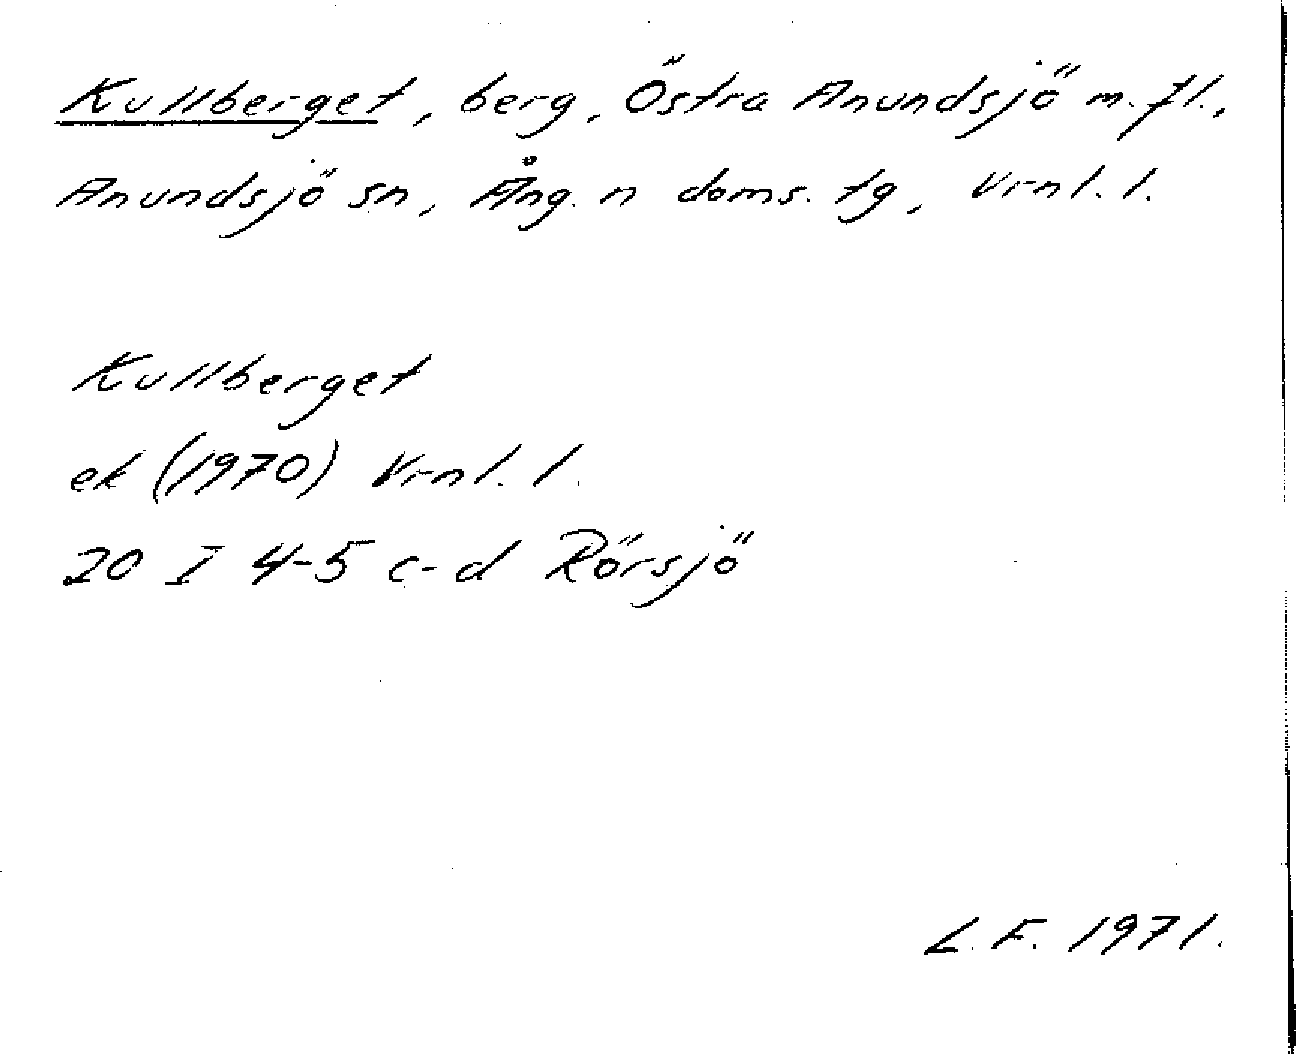 Kullberget, berg, Östra Anundsjö m.fl.,
Anundsjö sn, Ång. n doms. tg, Vrnl. l.
Kullberget
ek (1970) Vrnl. l.
20 I 4-5 c-d Rörsjö
L. F. 1971.